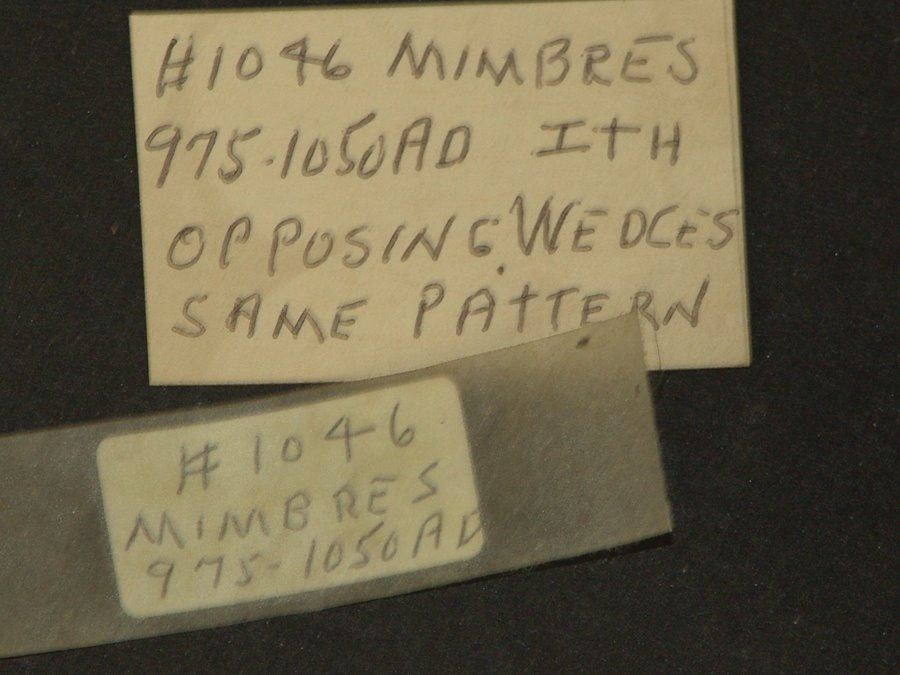 #1046 MIMBRES
975-1050AD ITH
OPPOSING WEDGES
SAME PATTERN
#1046
MIMBRES
975-1050AD